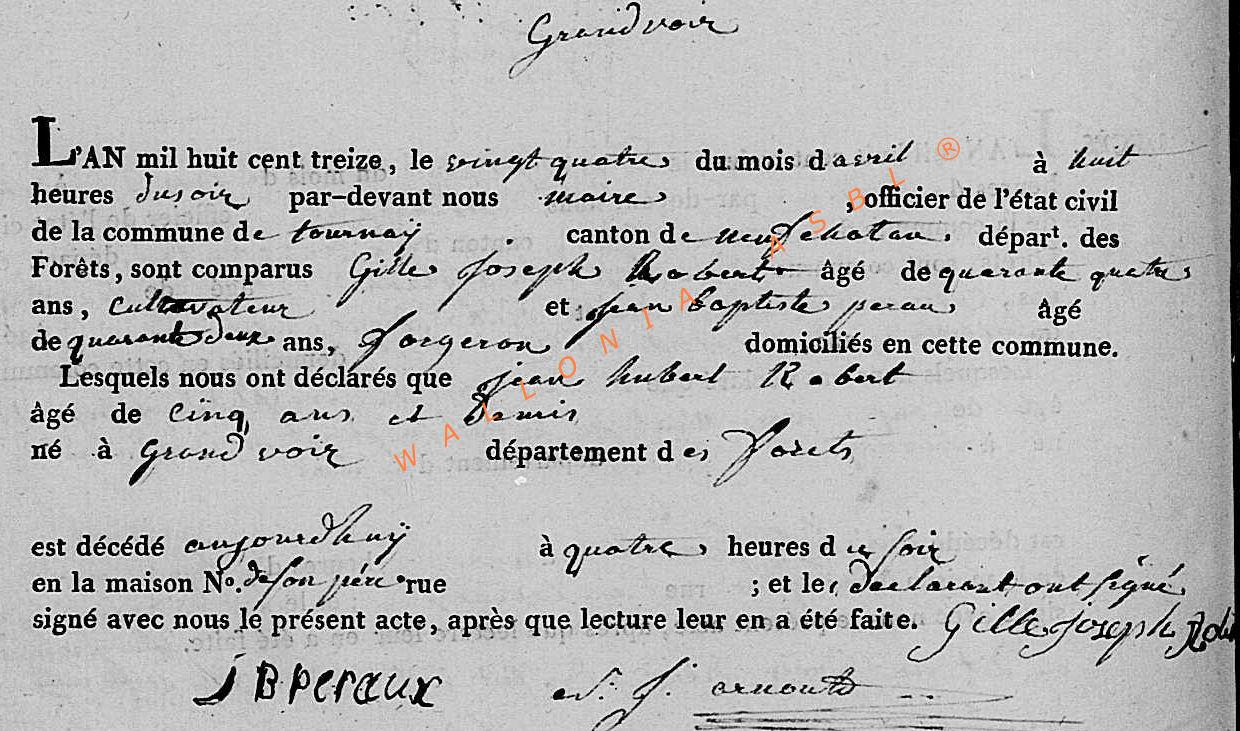 Grandvoir
L'AN mil huit cent treize, le vingt quatre du mois d avril à huit
heures du soir par-devant nous maire , officier de l'état civil
de la commune de tournay canton de neufchatau. départ. des
Forêts, sont comparus Gille Joseph Robert âgé de quarante quatre
ans, cultivateur et jean baptiste perau âgé
de quarante deux ans, forgeron domiciliés en cette commune.
Lesquels nous ont déclarés que jean hubert Robert
âgé de cinq ans et demis
né à Grand voir département des forets
est décédé aujourdhuy à quatre heures du soir
en la maison No. de son pére rue ; et les declarant ont signé
signé avec nous le présent acte, après que lecture leur en a été faite. Gille Joseph
J B Peraux arnould
WALLONIA ASBL ®